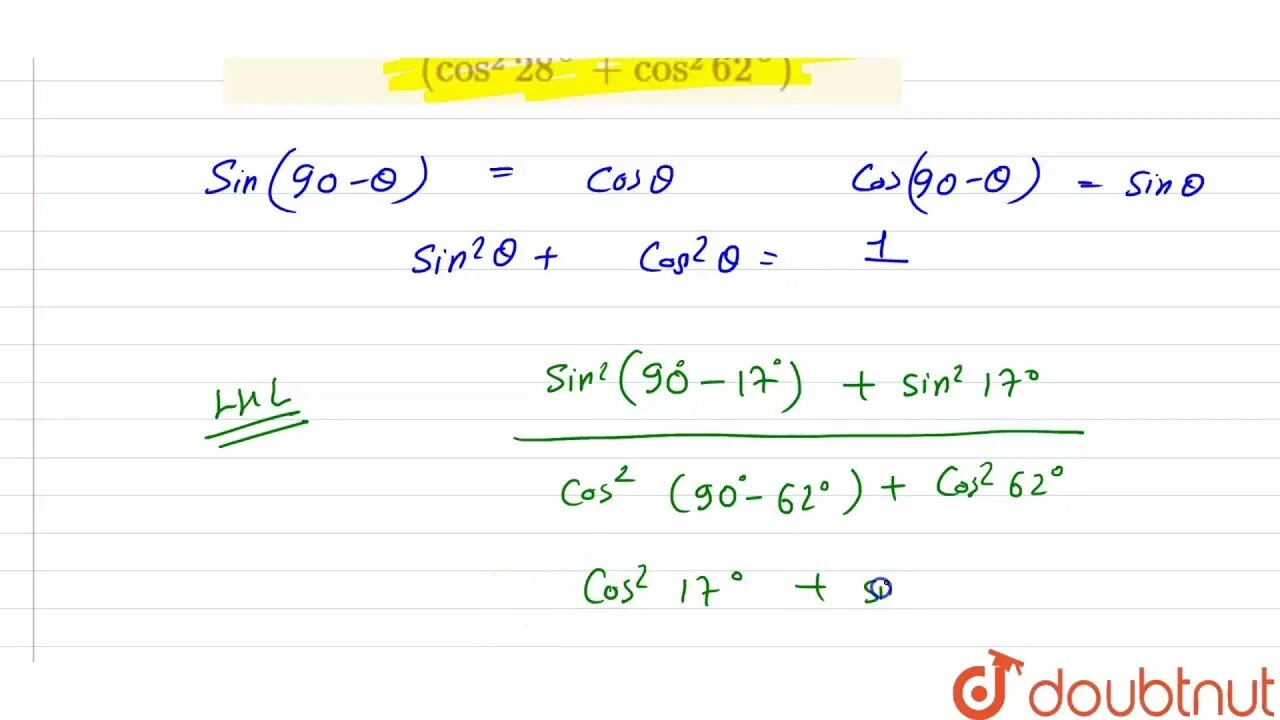 (cos² 28° + cos² 62°)
Sin(90-θ) = Cosθ Cos(90-θ) = sinθ
Sin²θ + Cos²θ = 1
Sin²(90°-17°) + sin² 17°
LHL
Cos² (90°-62°) + Cos² 62°
Cos² 17° + si
doubtnut